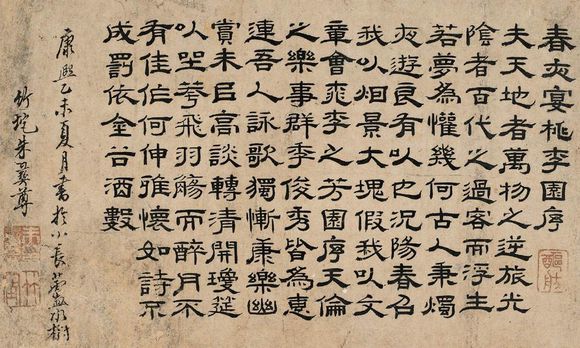 春夜宴桃李園序
夫天地者萬物之逆旅光
陰者百代之過客而浮生
若夢為懽幾何古人秉燭
夜遊良有以也況陽春召
我以烟景大塊假我以文
章會桃李之芳園序天倫
之樂事群季俊秀皆為惠
連吾人詠歌獨慚康樂幽
賞未已高談轉清開瓊筵
以坐華飛羽觴而醉月不
有佳作何伸雅懷如詩不
成罰依金谷酒數
康熙乙未夏月書於小長蘆水榭
竹垞朱彝尊